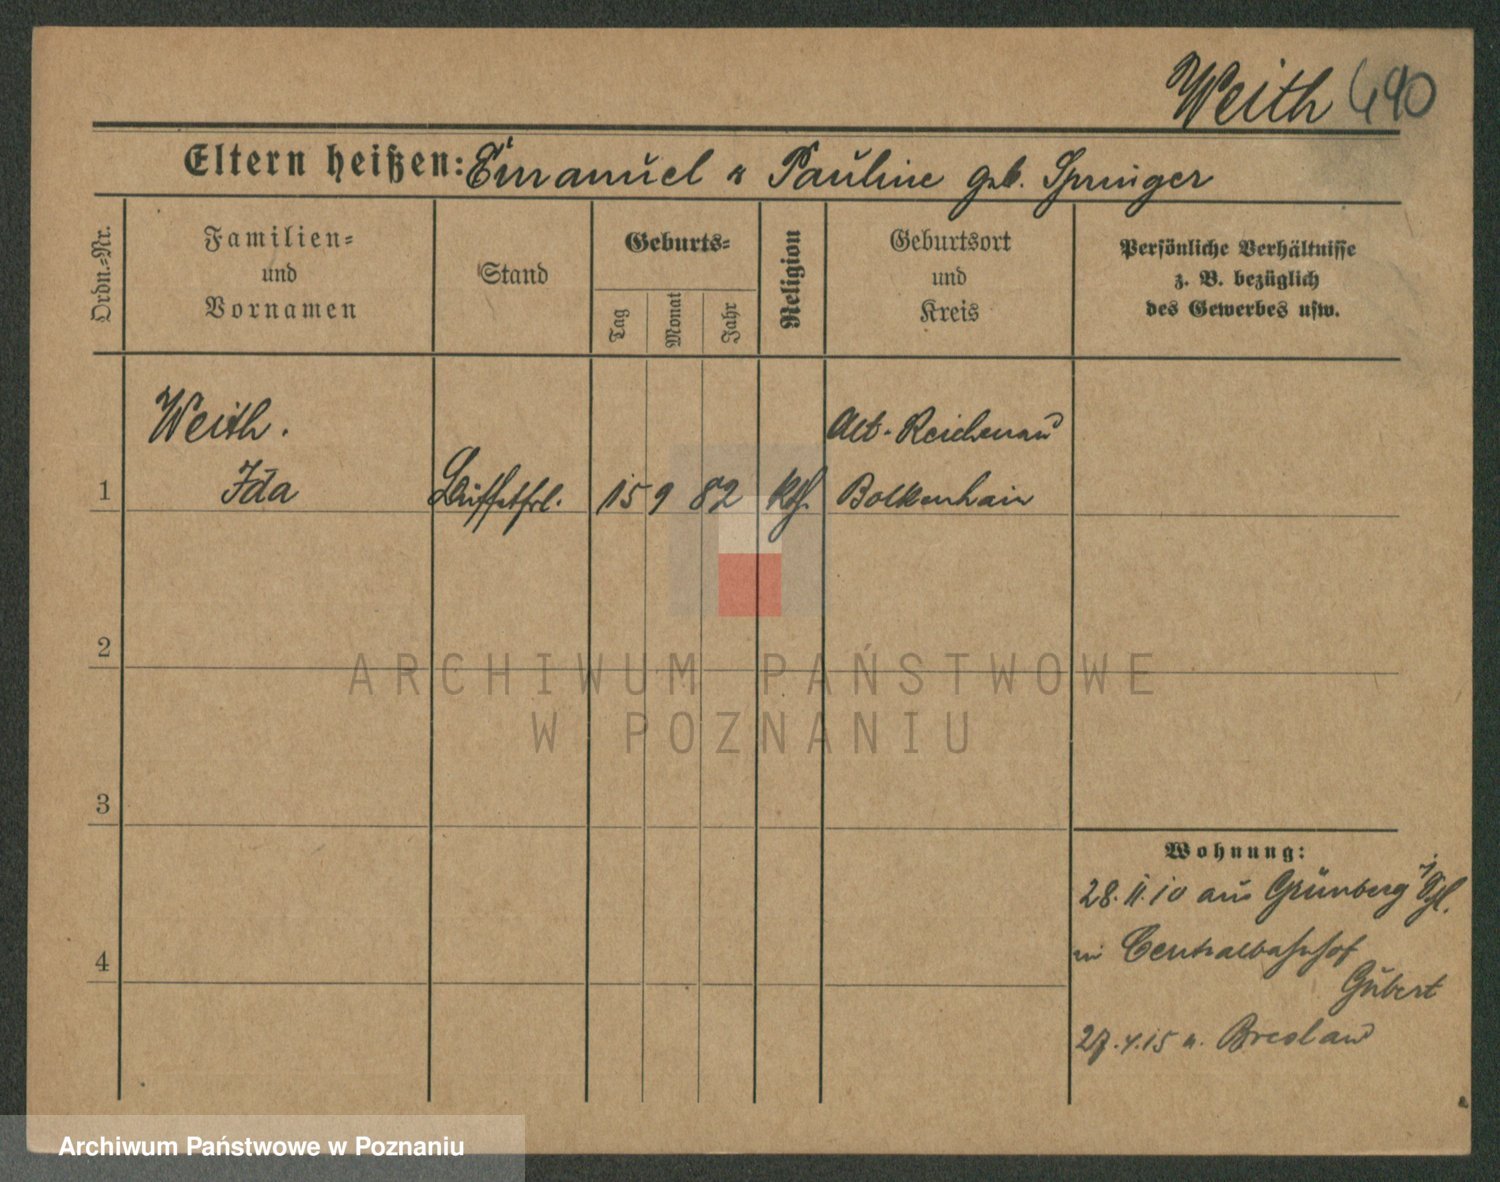 Weith 690
Eltern heißen: Emanuel u Pauline geb. Springer
Ordn.-Nr.
Familien-
und
Vornamen
Stand
Geburts-
Tag
Monat
Jahr
Religion
Geburtsort
und
Kreis
Persönliche Verhältnisse
z. B. bezüglich
des Gewerbes usw.
Weith.
Alt-Reichenau
1 Ida Büffetfrl. 15 9 82 kth. Bolkenhain
2
ARCHIWUM PAŃSTWOWE
W POZNANIU
3
Wohnung:
28.11.10 aus Grünberg i/Schl.
4
Centralbahnhof
27.4.15 n. Breslau
Archiwum Państwowe w Poznaniu